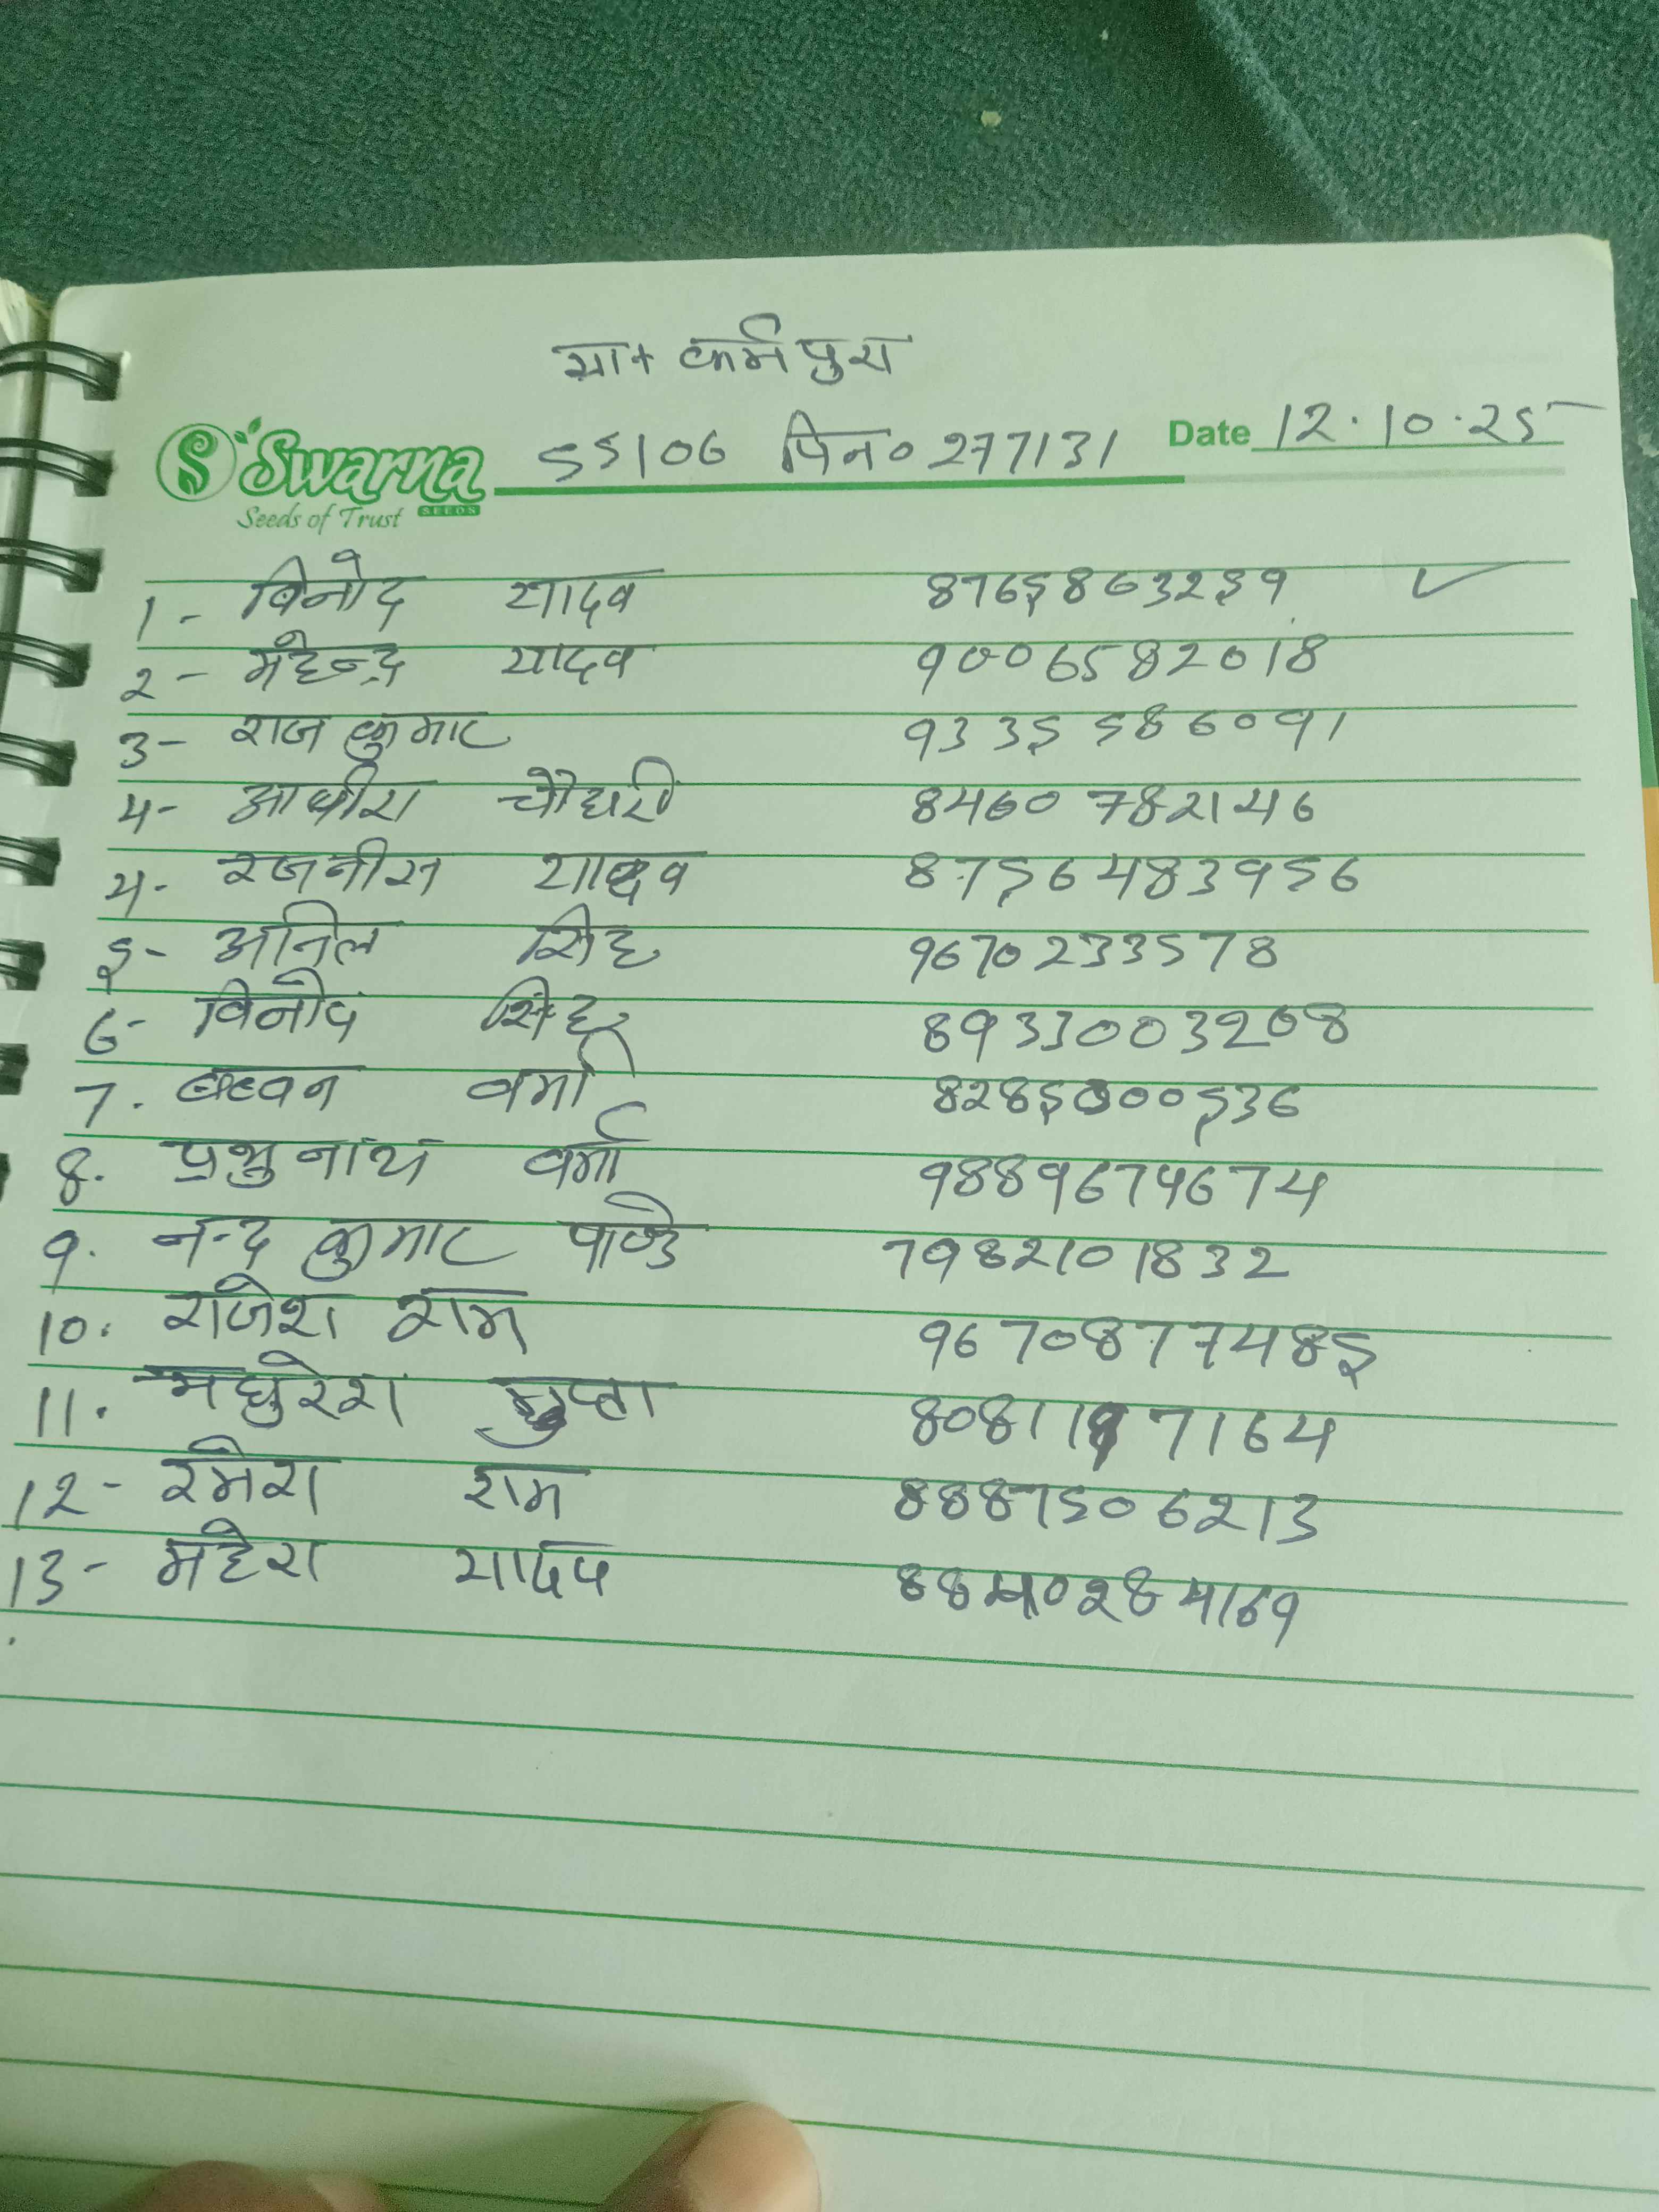 ग्रा+ कर्मपुरा
Swarna SS106 पिन० 277131 Date 12.10.25
Seeds of Trust SEEDS
1- विनोद यादव 8765863259 ✓
2- महेन्द्र यादव 9006582018
3- राज कुमार 9335586091
4- आशीश चौधरी 8460782146
4- रजनीश यादव 8756483956
5- अनिल सिंह 9670233578
6- विनोद सिंह 8933003208
7. वर्मा 8285000536
8. प्रभुनाथ वर्मा 9889674674
9. नन्द कुमार पाण्डे 7982101832
10. राजेश राम 9670877485
11. मधुरेश गुप्ता 8081197164
12- रमेश राम 8887506213
13- महेश यादव